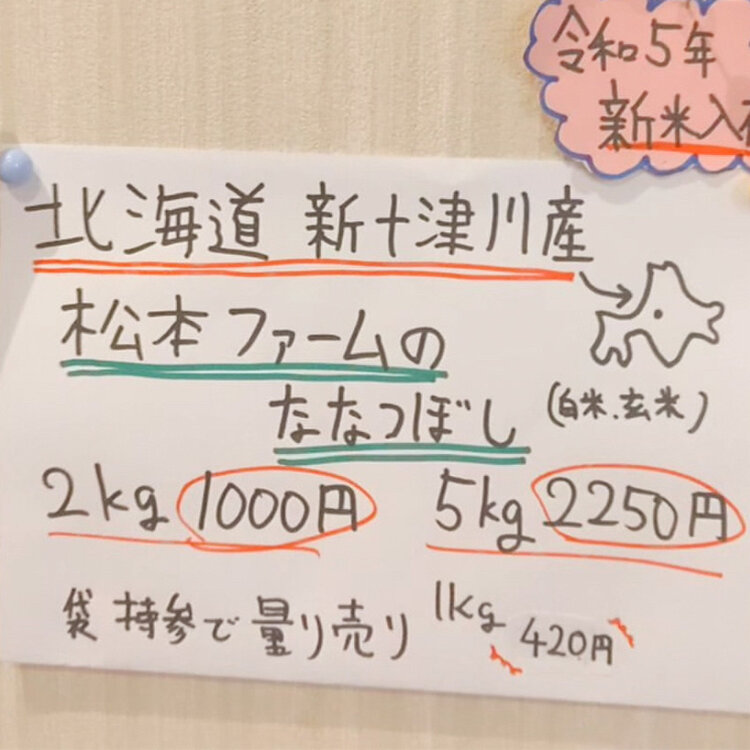 令和5年
新米入
北海道 新十津川産
松本ファームの
ななつぼし
(白米.玄米)
2kg 1000円
5kg 2250円
袋持参で量り売り 1kg 420円